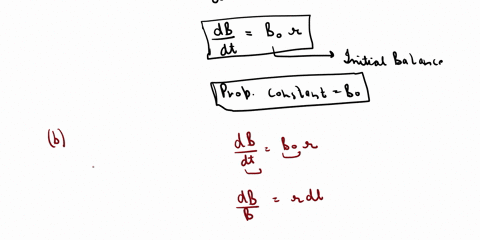 dB/dt = B₀ r
Initial Balance
Prop. constant = B₀
(b)
dB/dt = B₀ r
dB/B = r dt